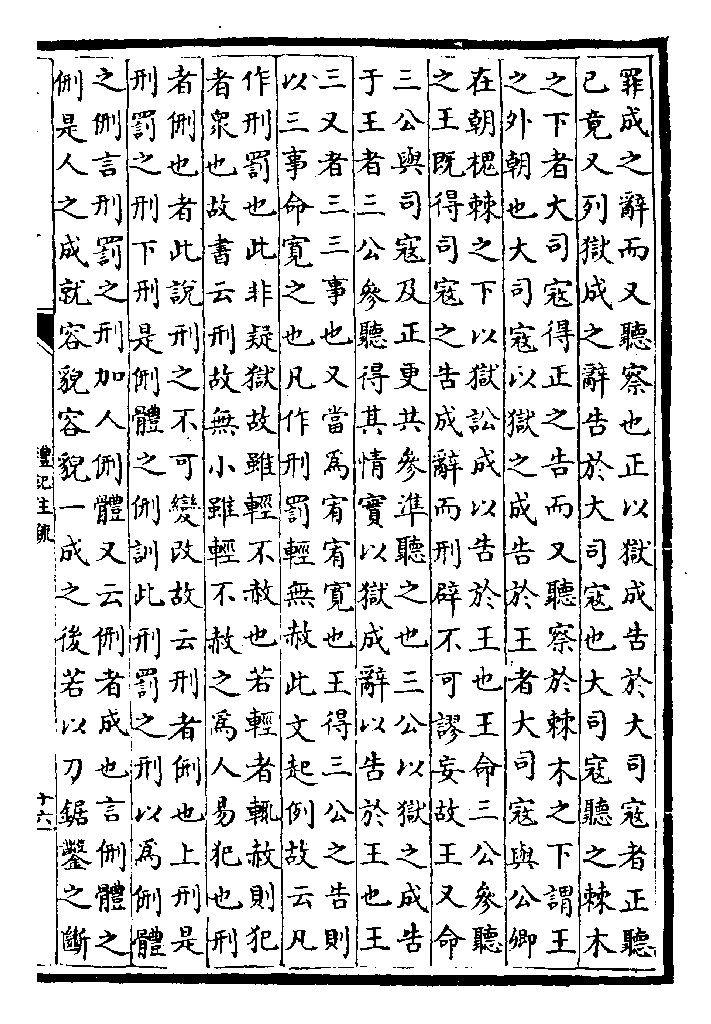 罪成之辭而又聽察也正以獄成告於大司寇者正聽
已竟又列獄成之辭告於大司寇也大司寇聽之棘木
之下者大司寇得正之告而又聽察於棘木之下謂王
之外朝也大司寇以獄之成告於王者大司寇與公卿
在朝槐棘之下以獄訟成以告於王也王命三公參聽
之王既得司寇之告成辭而刑辟不可謬妄故王又命
三公與司寇及正更共參準聽之也三公以獄之成告
于王者三公參聽得其情實以獄成辭以告於王也王
三又者三三事也又當為宥宥寬也王得三公之告則
以三事命寬之也凡作刑罰輕無赦此文起例故云凡
作刑罰也此非疑獄故雖輕不赦也若輕者輒赦則犯
者衆也故書云刑故無小雖輕不赦之為人易犯也刑
者侀也者此說刑之不可變改故云刑者侀也上刑是
刑罰之刑下刑是侀體之侀訓此刑罰之刑以為侀體
之侀言刑罰之刑加人侀體又云侀者成也言侀體之
侀是人之成就容貌容貌一成之後若以刀鋸鑿之斷
禮記注疏
十六